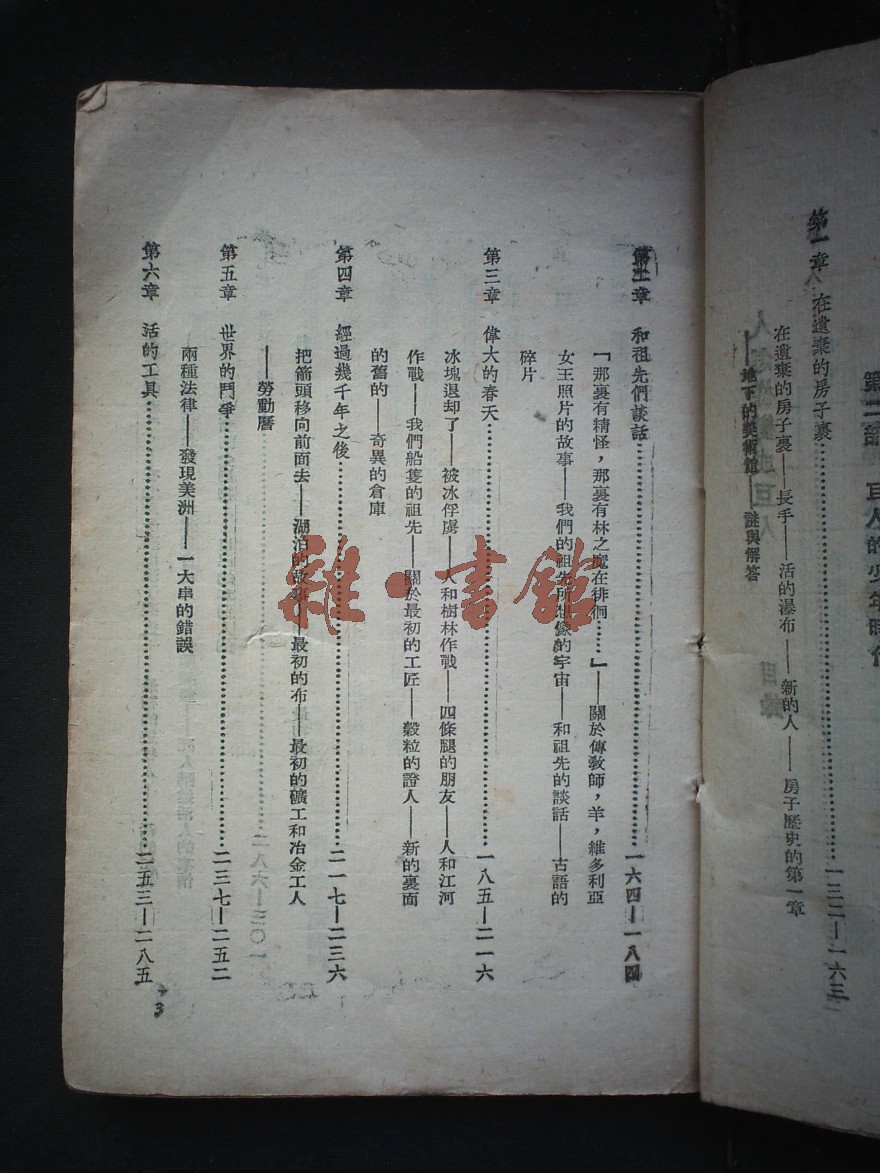 第二部 巨人的少年時代
第一章 在遺棄的房子裏……一三二—一六三
在遺棄的房子裏——長手——活的瀑布——新的人——房子歷史的第一章
——地下的美術館——謎與解答
第二章 和祖先們談話……一六四—一八四
「那裏有精怪,那裏有林之魔在徘徊……」——關於傳教師,羊,維多利亞
女王照片的故事——我們的祖先所想像的宇宙——和祖先的談話——古語的
碎片
第三章 偉大的春天……一八五—二一六
冰塊退却了——被冰俘虜——人和樹林作戰——四條腿的朋友——人和江河
作戰——我們船隻的祖先——關於最初的工匠——穀粒的證人——新的裏面
的舊的——奇異的倉庫
第四章 經過幾千年之後……二一七—二三六
把箭頭移向前面去——湖泊的故事——最初的布——最初的礦工和冶金工人
——勞動曆
第五章 世界的鬥爭……二三七—二五二
兩種法律——發現美洲——一大串的錯誤
第六章 活的工具……二五三—二八五
3
雜·書館